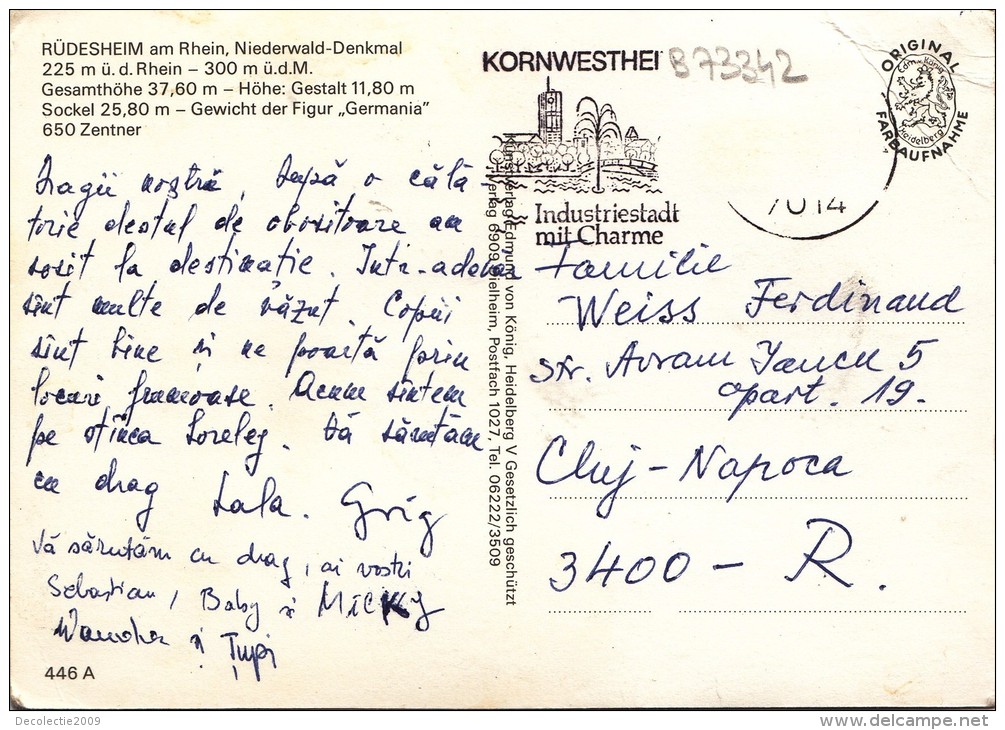 RÜDESHEIM am Rhein, Niederwald-Denkmal
225 m ü. d. Rhein – 300 m ü.d.M.
Gesamthöhe 37,60 m – Höhe: Gestalt 11,80 m
Sockel 25,80 m – Gewicht der Figur „Germania”
650 Zentner
Dragii noștri, după o călă-
torie destul de obositoare am
sosit la destinație. Într-adevăr
sînt multe de văzut. Copiii
sînt bine și ne poartă prin
locuri frumoase. Acum sîntem
pe stînca Loreley. Vă sărutăm
cu drag Lala. Grig
Vă sărutăm cu drag, ai voștri
Sebastian, Baby și MICKY
Wanda și Țupi
446 A
Kunstverlag Edmund von König, Heidelberg V Gesetzlich geschützt
Verlag 6909 Dielheim, Postfach 1027, Tel. 06222/3509
KORNWESTHEI
B73342
Industriestadt
mit Charme
7014
ORIGINAL
FARBAUFNAHME
Edm. König
Heidelberg
Familie
Weiss Ferdinand
Str. Avram Iancu 5
apart. 19.
Cluj-Napoca
3400 – R.
Decolectie2009
delcampe.net